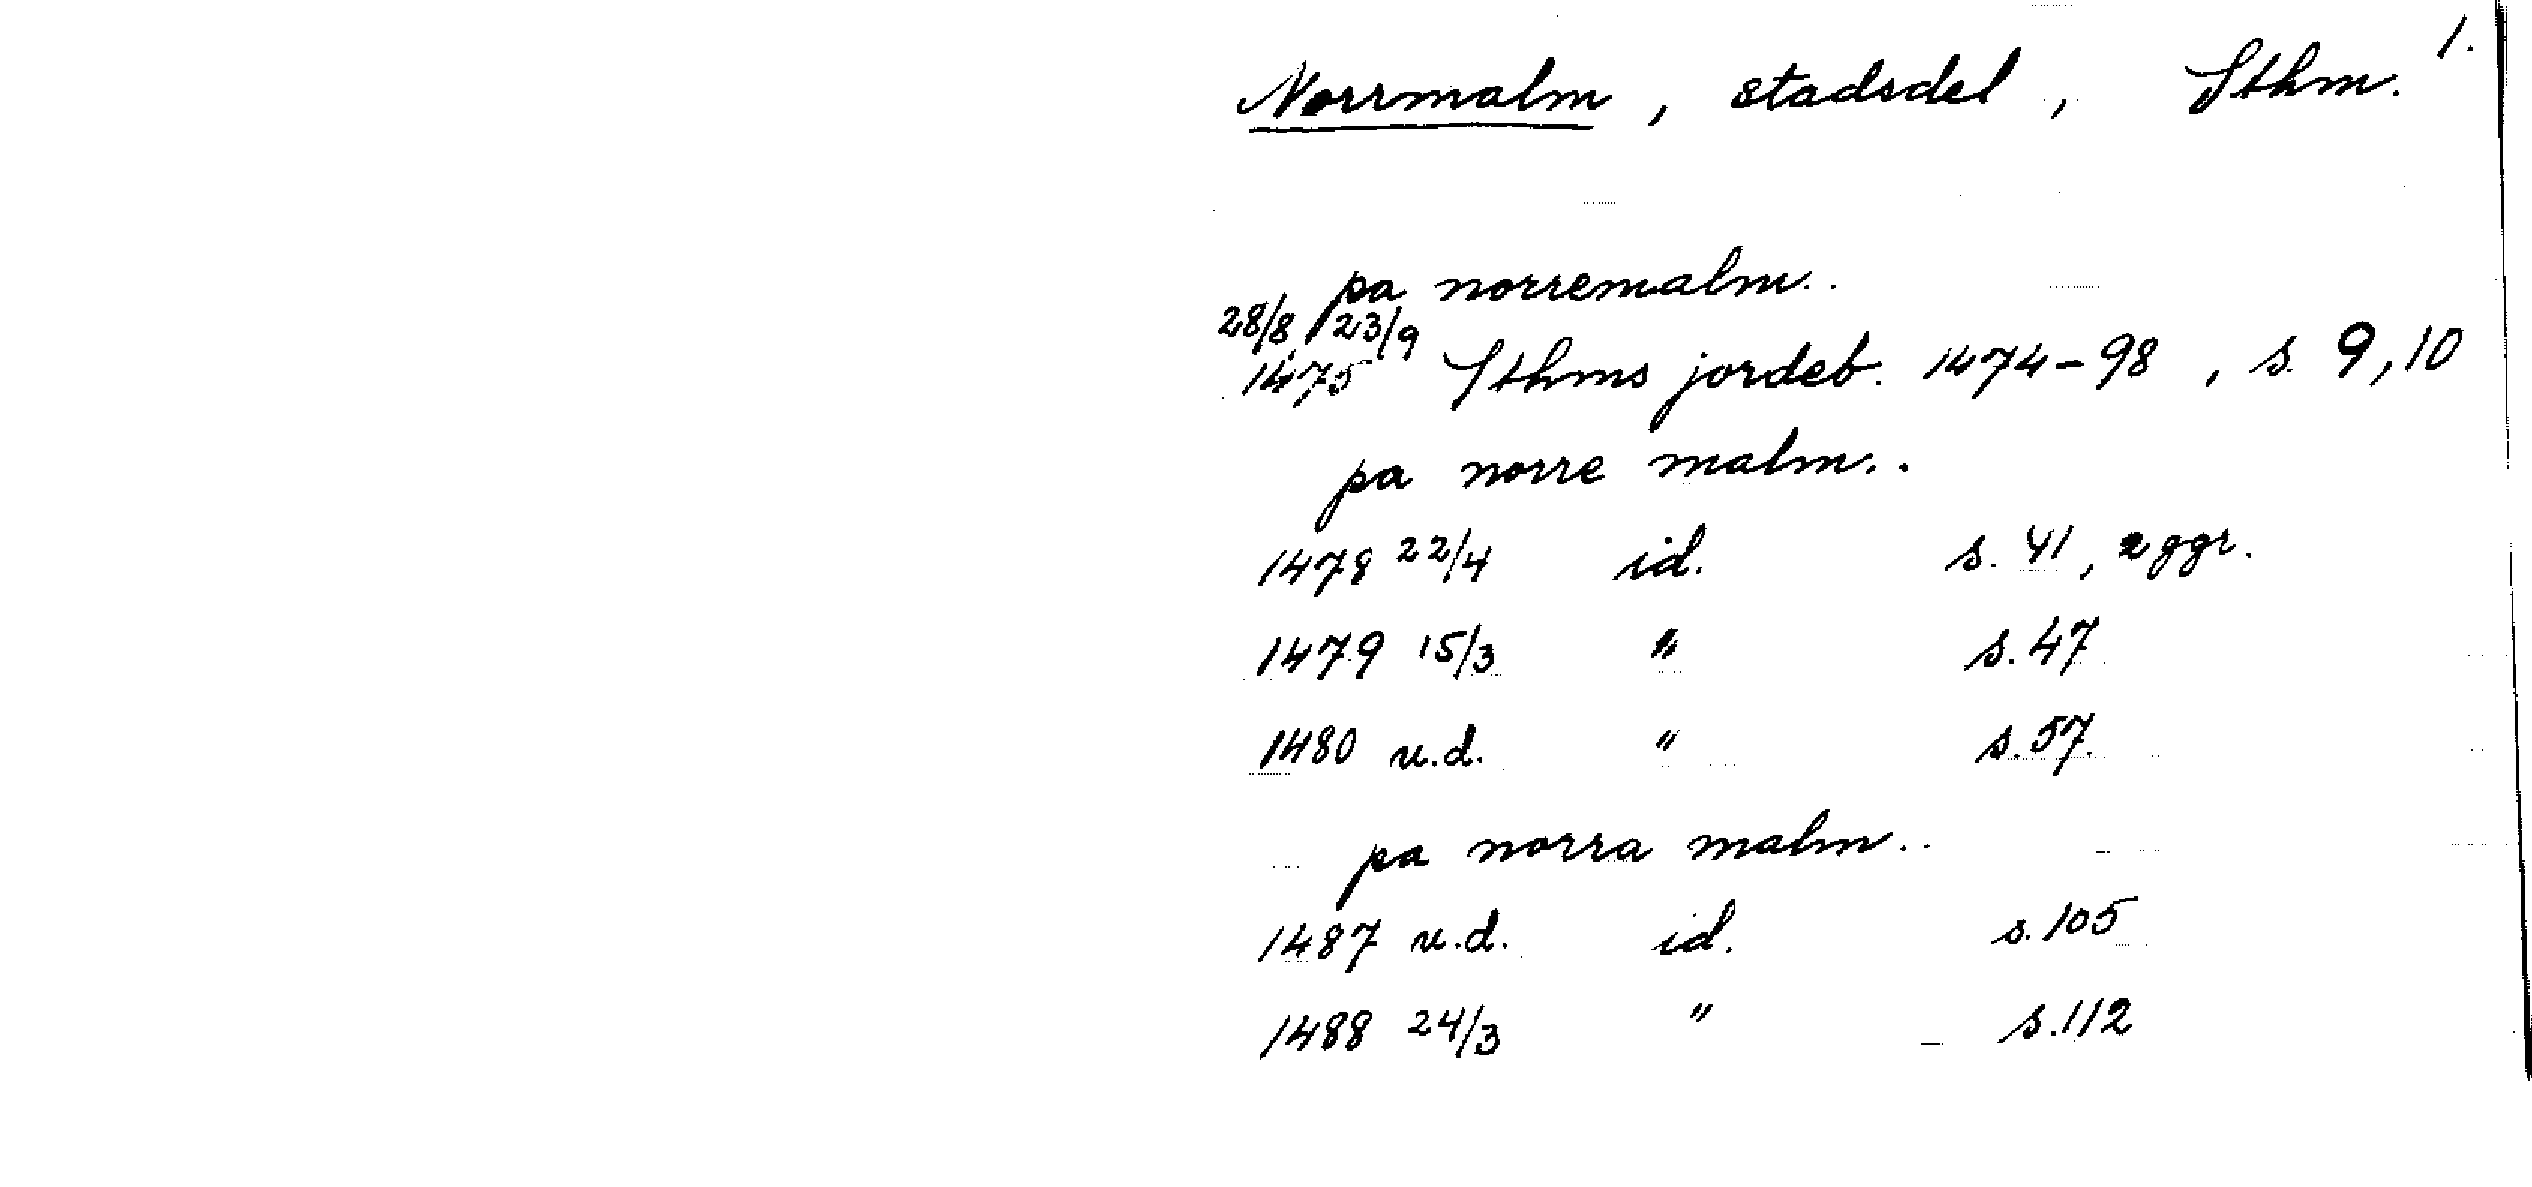 1.
Norrmalm, stadsdel, Sthm.
pa norremalm..
28/8, 23/9
1475 Sthms jordeb. 1474-98, s. 9, 10
pa norre malm..
1478 22/4 id. s. 41, 2 ggr.
1479 15/3 " s. 47
1480 u.d. " s. 57.
pa norra malm..
1487 u.d. id. s. 105
1488 24/3 " s. 112